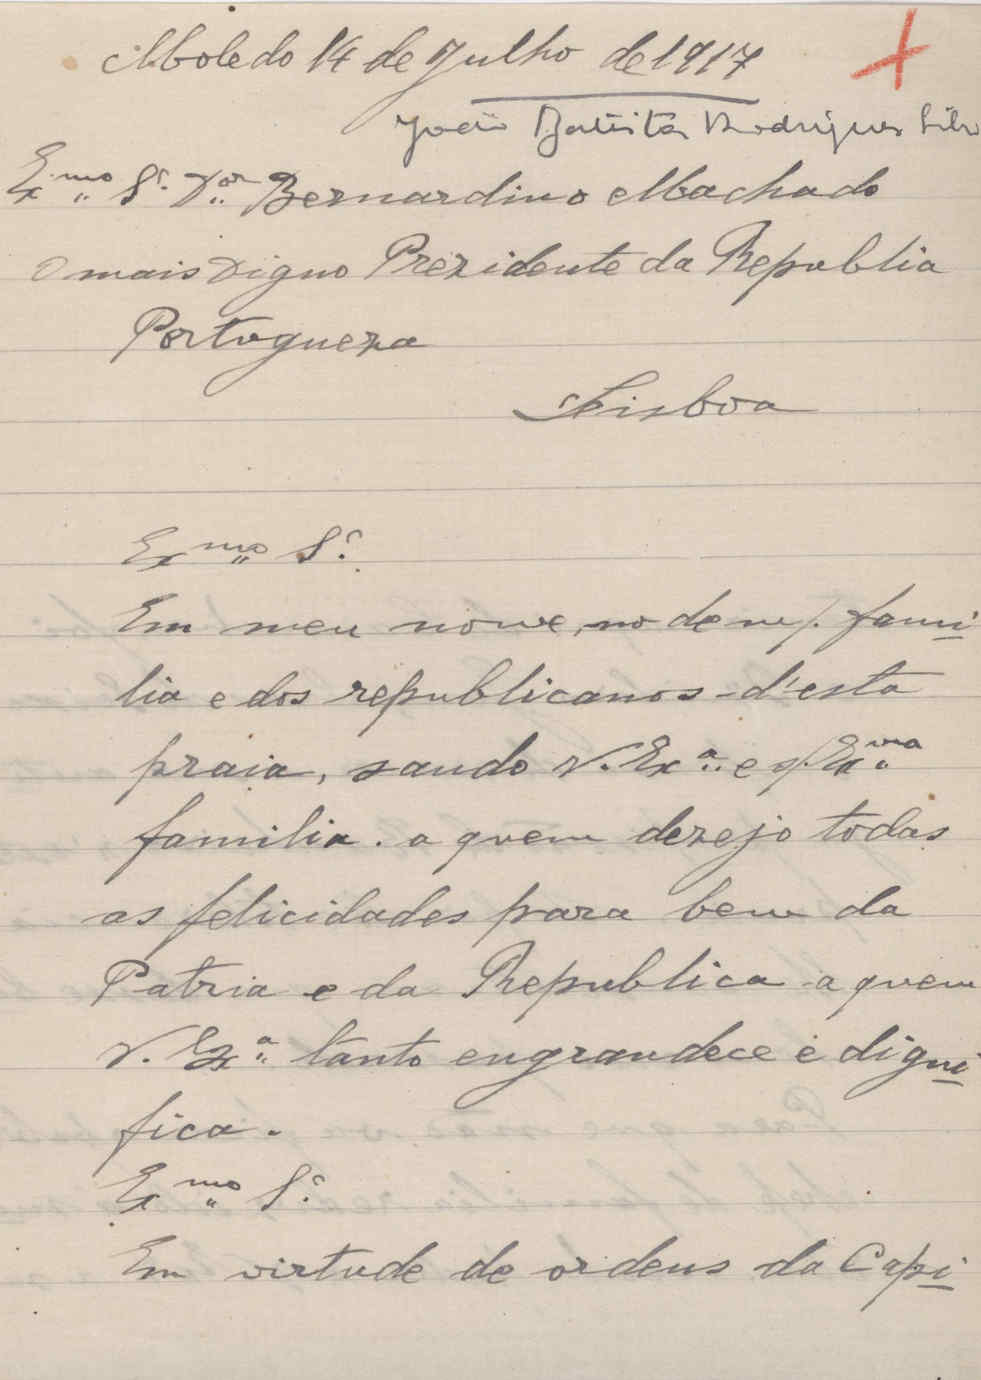 Moledo 14 de Julho de 1917
João Batista Rodrigues Silva
Exmo Sr. Dor Bernardino Machado
O mais Digno Prezidente da Republia
Portogueza
Lisboa
Exmo Sr.
Em meu nome, no de m/. fami
lia e dos republicanos d'esta
praia, saudo V. Exa. e s/. Exma
familia. a quem dezejo todas
as felicidades para bem da
Patria e da Republica a quem
V. Exa. tanto engrandece e digni
fica.
Exmo Sr.
Em virtude de ordens da Capi